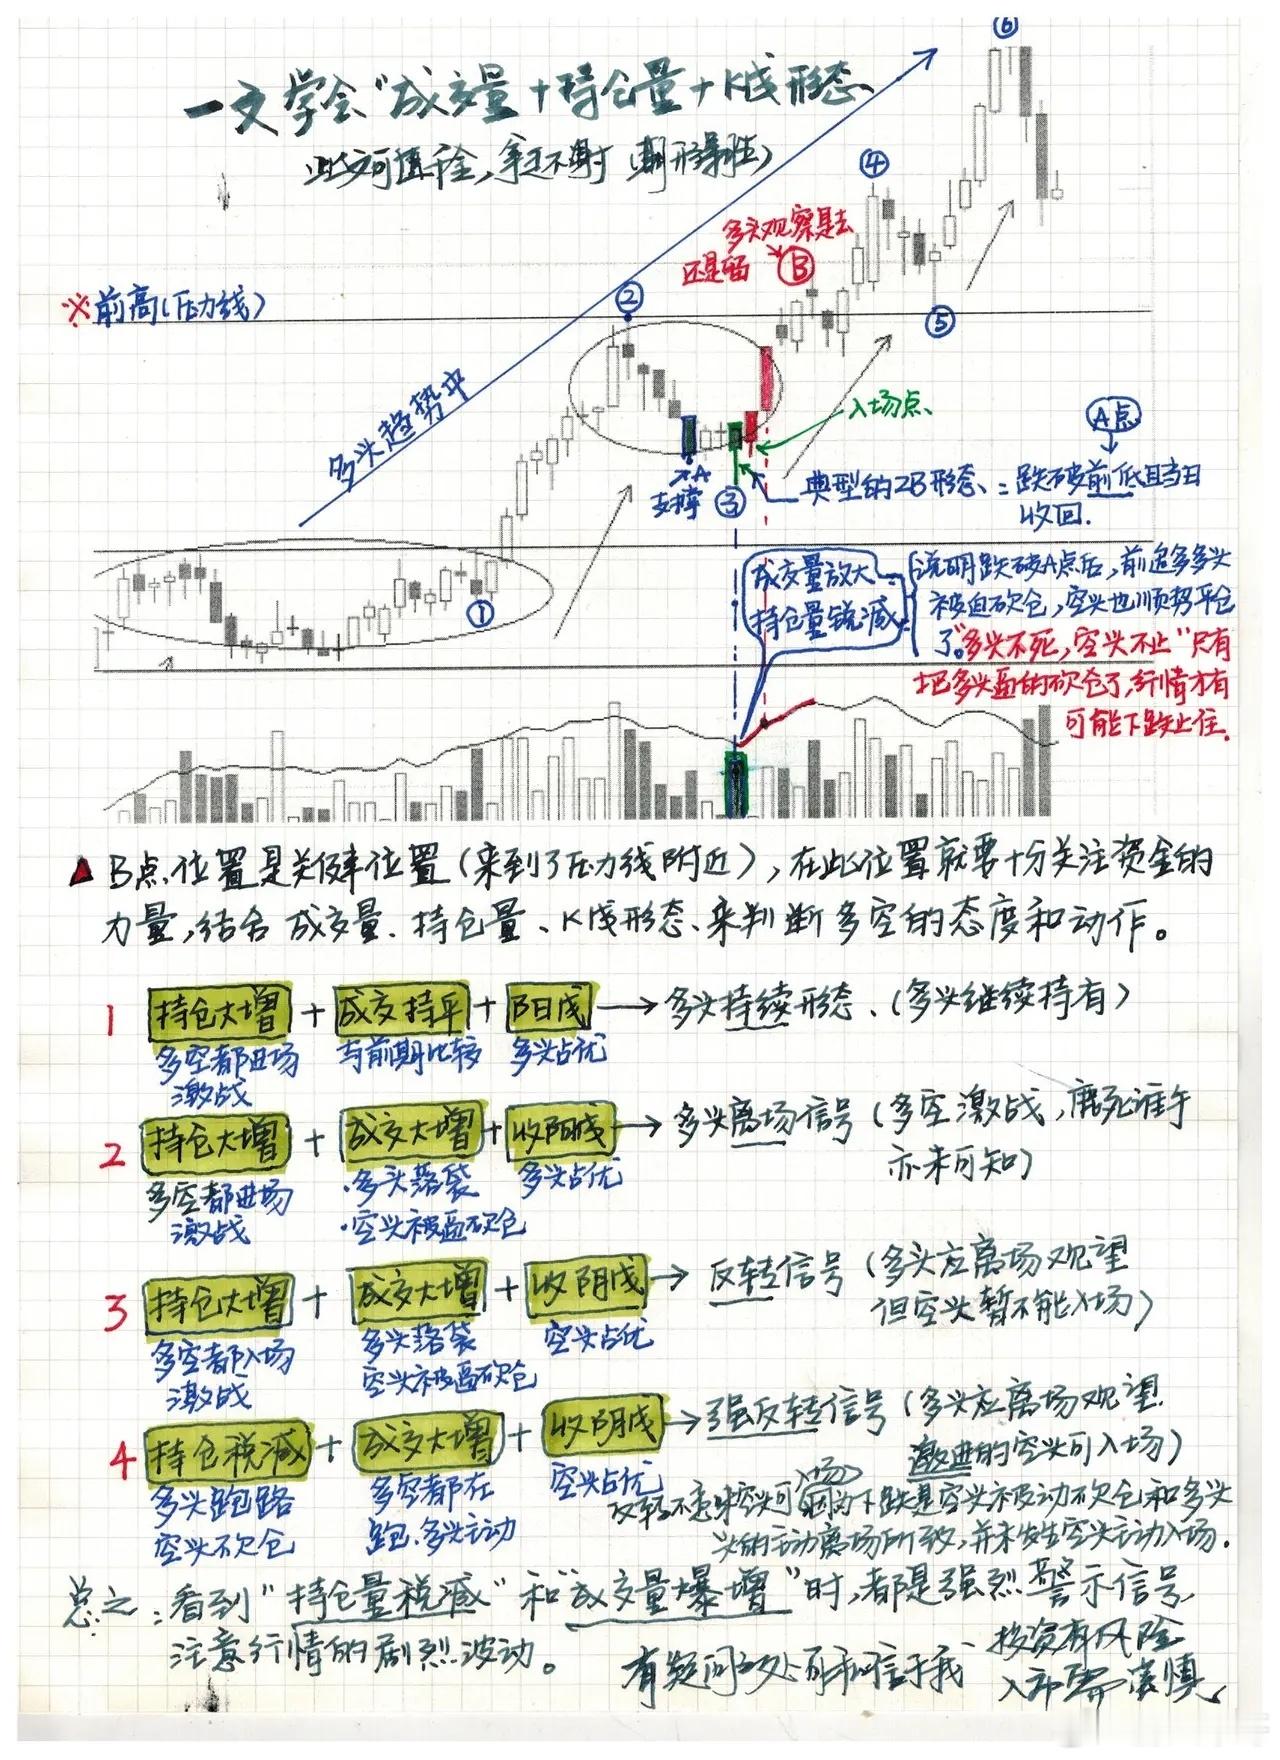 一文学会"成交量+持仓量+K线形态
此文可值千金,拿走不谢
⑥
④
多头观察是去
还是留 Ⓑ
※前高(压力线)
②
⑤
多头趋势中
入场点
A点
A
支撑
③
典型的2B形态、:跌破前低且当日
收回.
①
成交量放大
持仓量锐减
说明跌破A点后,前追多多头
被迫砍仓,空头也顺势平仓
了。"多头不死,空头不止"只有
把多头逼的砍仓了,行情才有
可能下跌止住.
▲B点位置是关键位置(来到了压力线附近),在此位置就要十分关注资金的
力量,结合成交量、持仓量、K线形态、来判断多空的态度和动作。
1 持仓大增+成交持平+阳线→多头持续形态、(多头继续持有)
多空都进场 与前期比较 多头占优
激战
2 持仓大增+成交大增+收阳线→多头离场信号(多空激战,鹿死谁手
亦未可知)
多空都进场 ·多头落袋 多头占优
激战 ·空头被逼砍仓
3 持仓大增+成交大增+收阴线→反转信号(多头应离场观望
但空头暂不能入场)
多空都入场 多头落袋 空头占优
激战 空头被逼砍仓
4 持仓税减+成交大增+收阴线→强反转信号(多头应离场观望.
激进的空头可入场)
多头跑路 多空都在 空头占优
空头砍仓 跑.多头主动
反转不意味空头可入场 因为下跌是空头被动砍仓和多头
头的主动离场所致,并未发生空头主动入场.
总之:看到"持仓量税减"和"成交量爆增"时,都是强烈警示信号,
注意行情的剧烈波动。
有疑问之处可私信于我
投资有风险
入市需谨慎。